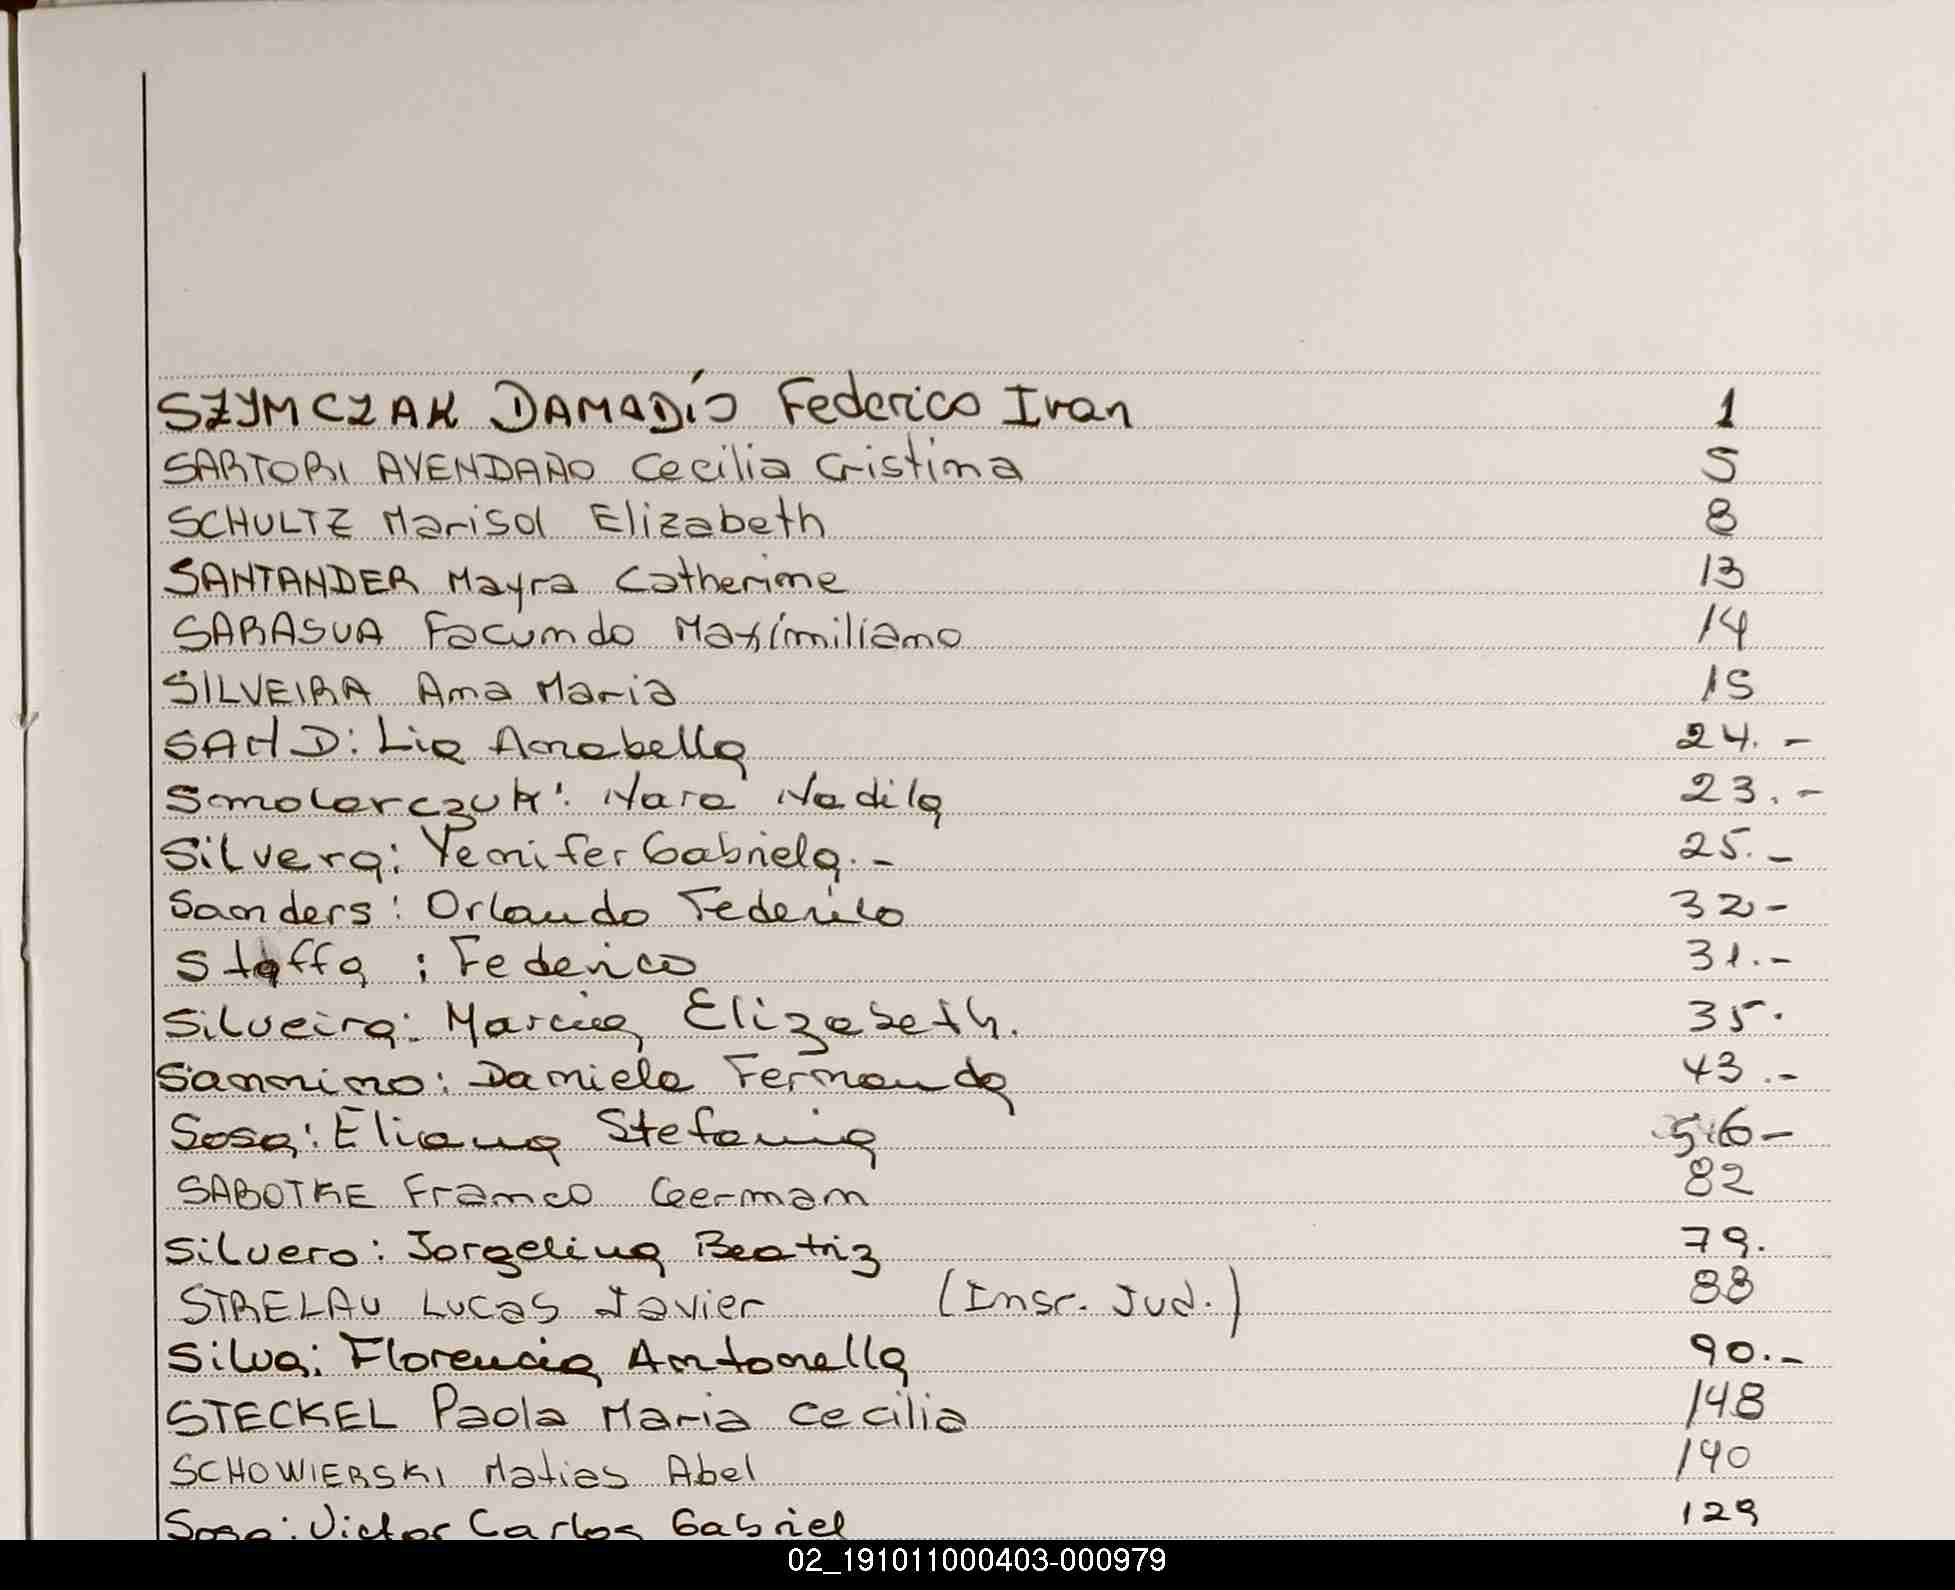 SZYMCZAK DAMADÍO Federico Ivan 1
SARTORI AVENDAÑO Cecilia Cristina 5
SCHULTZ Marisol Elizabeth 8
SANTANDER Mayra Catherine 13
SARASUA Facundo Maximiliano 14
SILVEIRA Ana Maria 15
SAHD: Lia Anabella 24.-
Smolarczuk: Nara Nadila 23.-
Silvera: Yenifer Gabriela.- 25.-
Sanders: Orlando Federico 32-
Staffa: Federico 31.-
Silveira: Marcia Elizabeth. 35.
Sannino: Daniela Fernanda 43.-
Sosa: Eliana Stefania 56-
SABOTKE Franco German 82
Silvero: Jorgelina Beatriz 79.
STRELAU Lucas Javier (Insc. Jud.) 88
Silva: Florencia Antonella 90.-
STECKEL Paola Maria Cecilia 148
SCHOWIERSKI Matias Abel 140
Sosa: Victor Carlos Gabriel 129
02_191011000403-000979